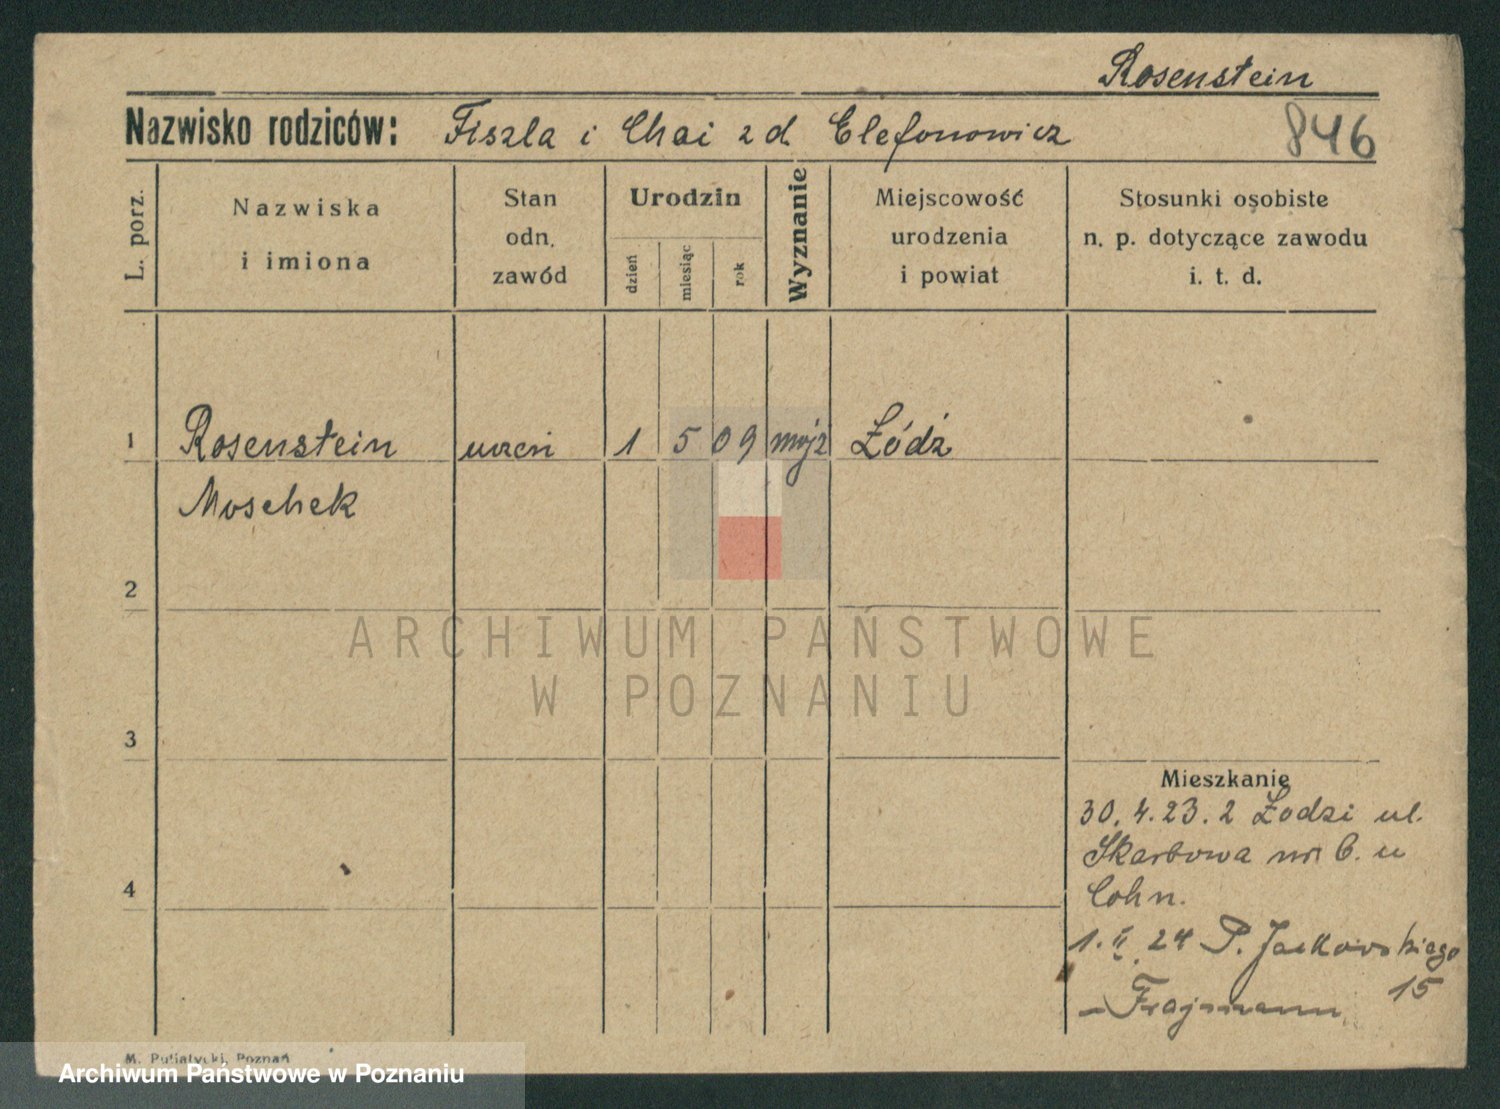 Rosenstein
Nazwisko rodziców: Fiszla i Chai z d. Elefonowicz
846
L. porz.
Nazwiska
i imiona
Stan
odn.
zawód
Urodzin
dzień
miesiąc
rok
Wyznanie
Miejscowość
urodzenia
i powiat
Stosunki osobiste
n. p. dotyczące zawodu
i. t. d.
1 Rosenstein uczeń 1 5 09 mojż Łódź
Moschek
2
ARCHIWUM PAŃSTWOWE
W POZNANIU
3
Mieszkanie
30. 4. 23. z Łodzi ul.
Skarbowa nr 6. u
Cohn.
4
1. II. 24 P. Jackowskiego
15
– Frajmann
M. Putiatycki, Poznań
Archiwum Państwowe w Poznaniu